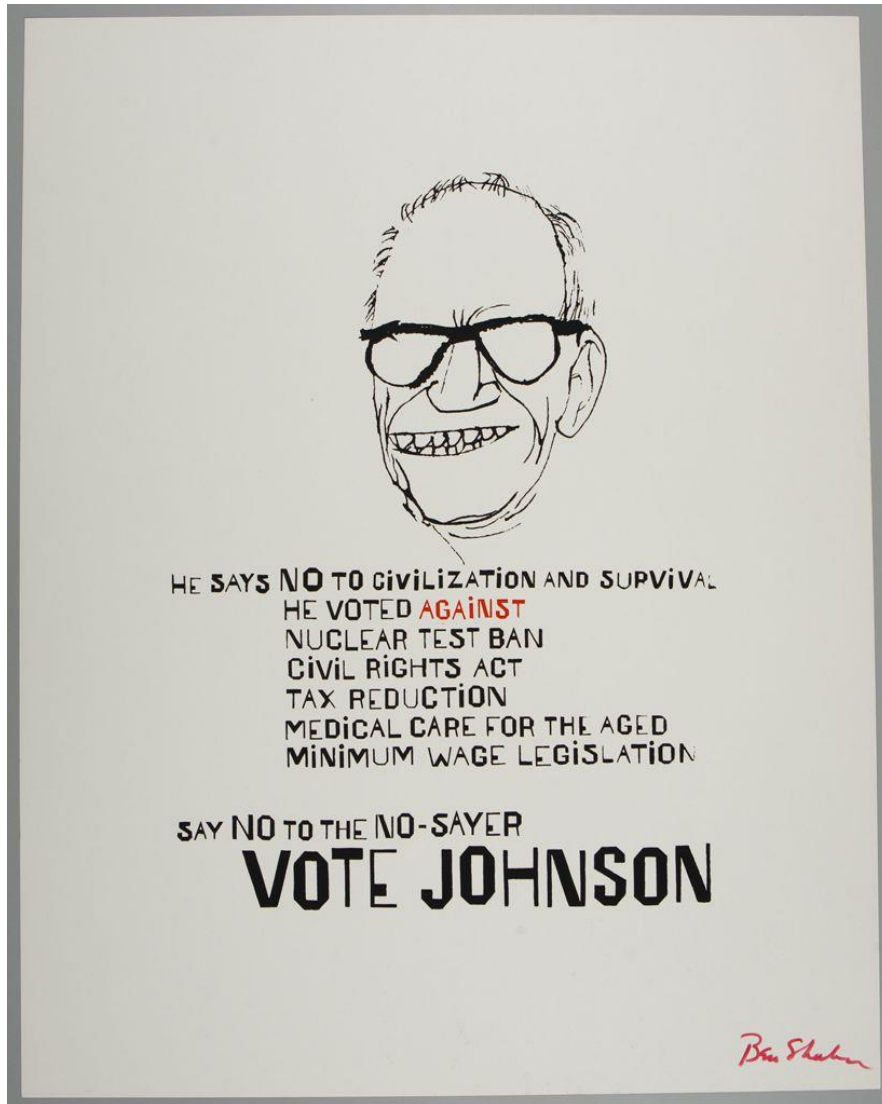 HE SAYS NO TO CiViLiZATiON AND SUPViVAL
HE VOTED AGAiNST
NUCLEAR TEST BAN
CiViL RiGHTS ACT
TAX REDUCTiON
MEDiCAL CARE FOR THE AGED
MiNiMUM WAGE LEGiSLATiON
SAY NO TO THE NO-SAYER
VOTE JOHNSON
Ben Shahn